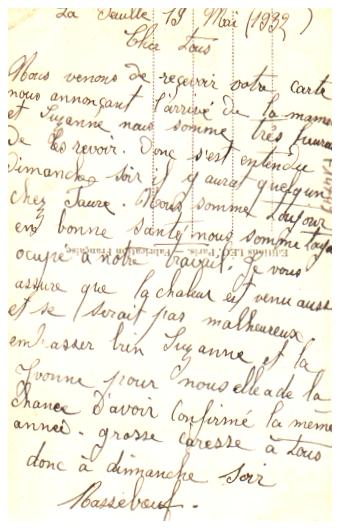 La Seulle 19 Maï (1932)
Chice tous
Nous venons de reçevoir votre carte
nous annonçant l'arrivé de la maman
et Suzanne nous somme très heureux
de les revoir. Donc s'est entendu
dimanche soir il y aurat quelqun
chez Faure. Nous somme toujour
en bonne santé nous somme toujo
ocupé à notre travail. Je vous
assure que la chaleur est venu aussi
et se serait pas malheureux
embrasser bien Suzanne et la
Yvonne pour nous elle a de la
chance d'avoir confirmé la même
année. grosse caresse à tous
donc à dimanche soir
Masseboeuf.
Editions Paris. Fabrication Française